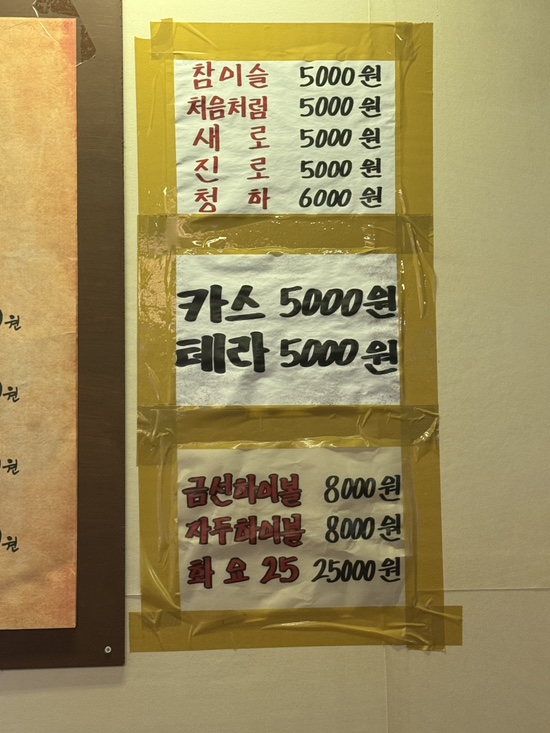 참이슬 5000원
처음처럼 5000원
새로 5000원
진로 5000원
청하 6000원
카스 5000원
테라 5000원
금선하이볼 8000원
자두하이볼 8000원
화요 25 25000원
원
원
원
원